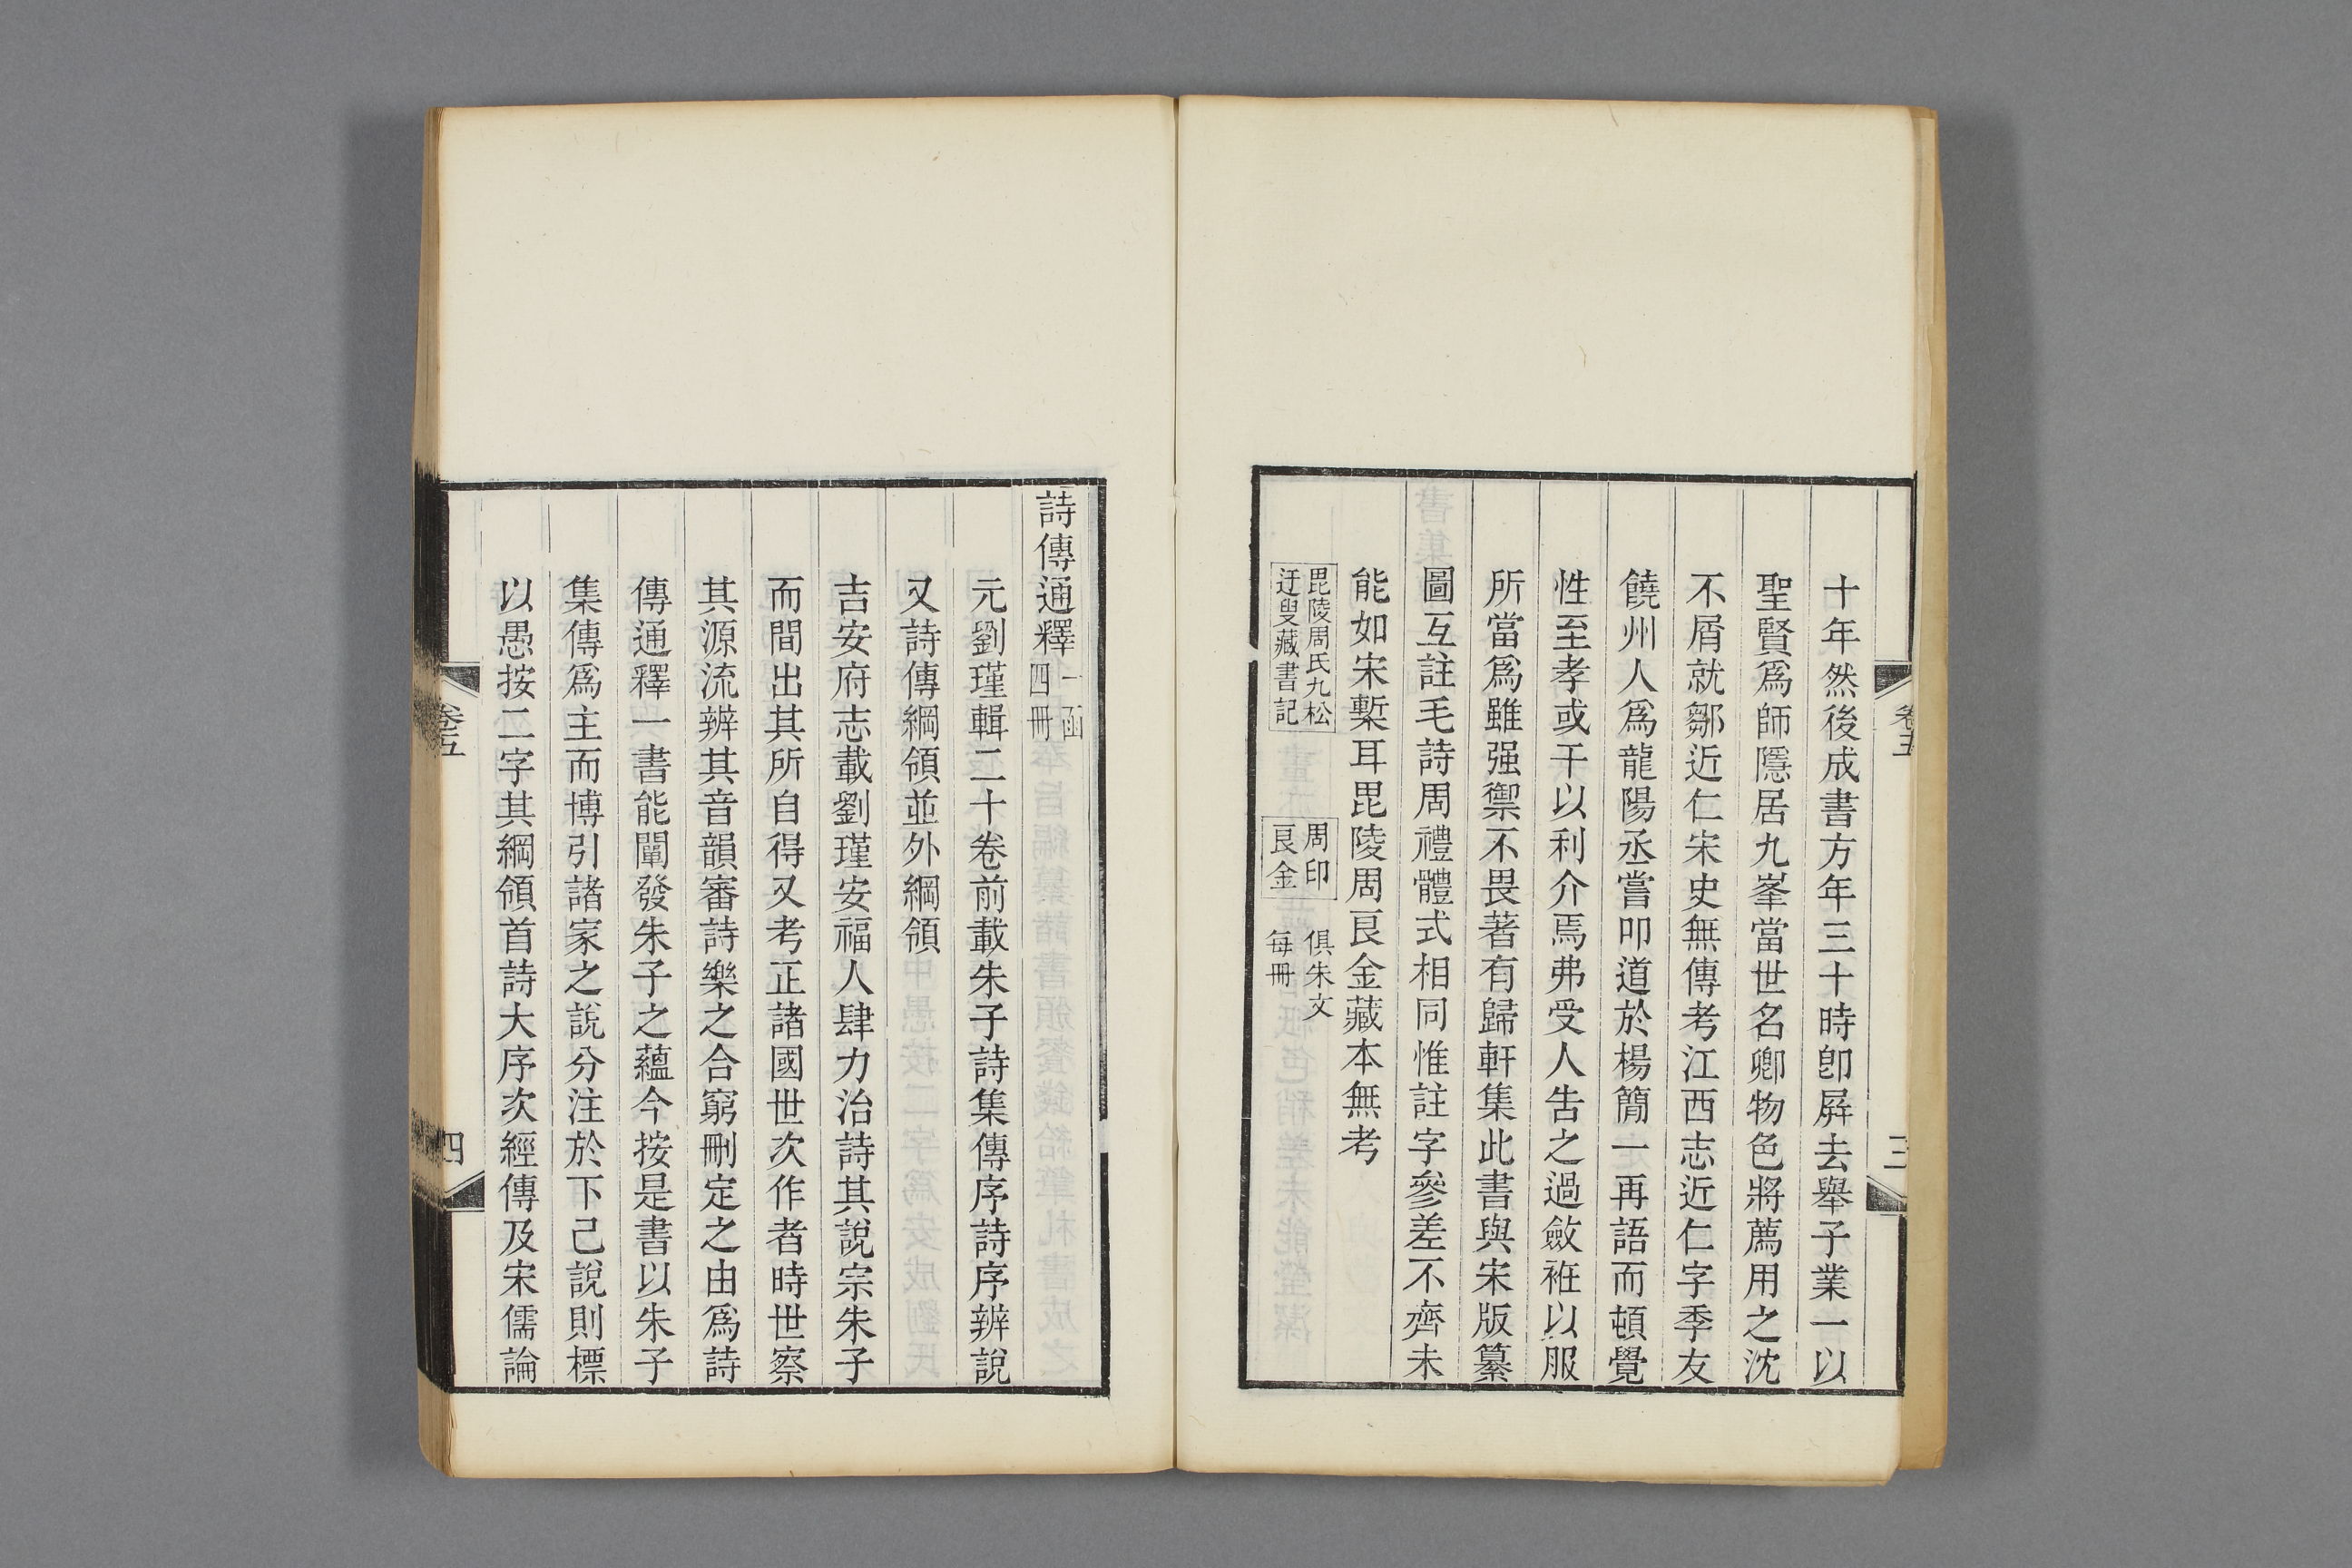 十年然後成書方年三十時卽屛去舉子業一以
聖賢爲師隱居九峯當世名卿物色將薦用之沈
不屑就鄒近仁宋史無傳考江西志近仁字季友
饒州人爲龍陽丞嘗叩道於楊簡一再語而頓覺
性至孝或干以利介焉弗受人告之過斂袵以服
所當爲雖强禦不畏著有歸軒集此書與宋版纂
圖互註毛詩周禮體式相同惟註字參差不齊未
能如宋槧耳毘陵周良金藏本無考
毘陵周氏九松
迂叟藏書記
周印
良金
俱朱文
每冊
卷五
三
詩傳通釋 一函
四冊
元劉瑾輯二十卷前載朱子詩集傳序詩序辨說
又詩傳綱領並外綱領
吉安府志載劉瑾安福人肆力治詩其說宗朱子
而間出其所自得又考正諸國世次作者時世察
其源流辨其音韻審詩樂之合窮刪定之由爲詩
傳通釋一書能闡發朱子之蘊今按是書以朱子
集傳爲主而博引諸家之說分注於下己說則標
以愚按二字其綱領首詩大序次經傳及宋儒論
卷五
四